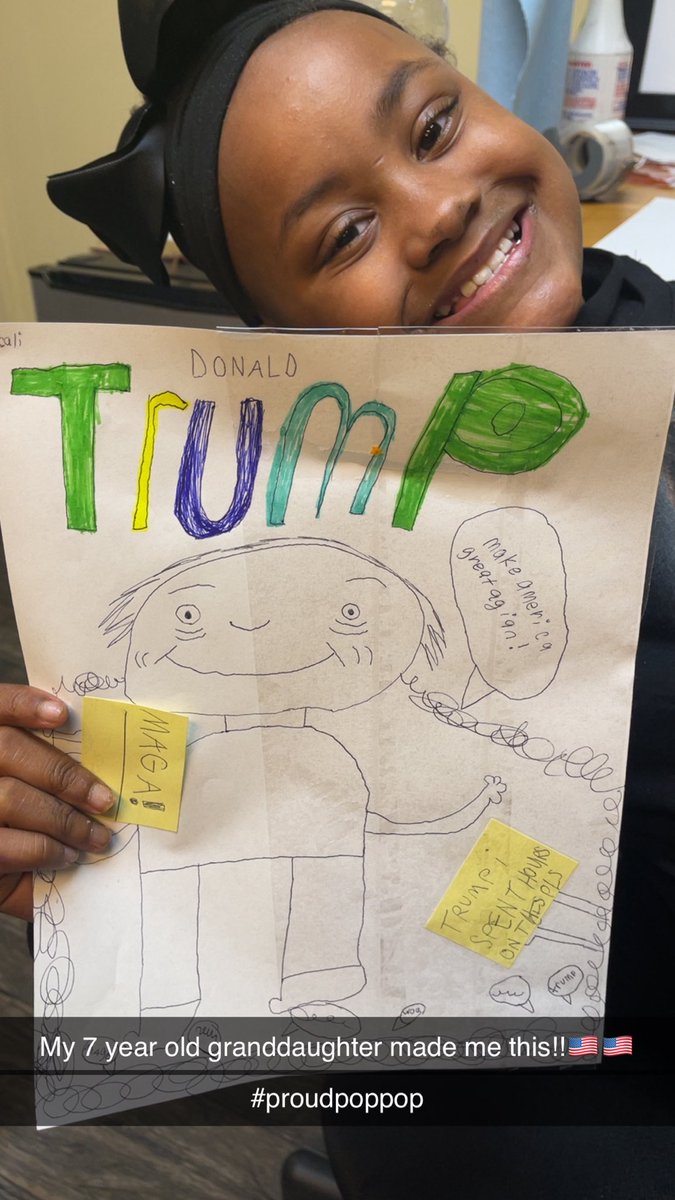 ali
DONALD
Trump
make america
great agian!
MAGA!
TRUMP i
SPENT HOURS
ON THIS PLS
Trump
My 7 year old granddaughter made me this!!🇺🇸🇺🇸
#proudpoppop